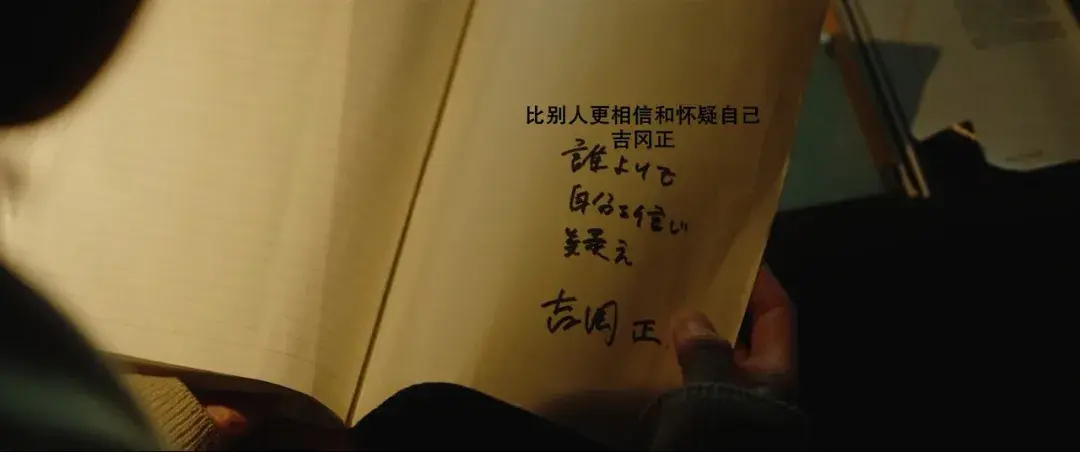 比别人更相信和怀疑自己
吉冈正
誰よりも
自分を信じ
疑え
吉岡 正